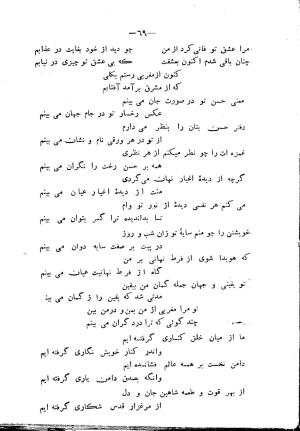 —۶۹—
مرا عشق تو فانی کرد از من چو دید از خود بغایت در عذابم
چنان باقی شدم اکنون بعشقت که بی عشق تو چیزی در نیابم
کنون از مغربی رستم بکلی
که از مشرق برآمد آفتابم
معنی حسن تو در صورت جان می بینم
عکس رخسار تو در جام جهان می بینم
دفتر حسن بتان را بنظر می دارم
از تو در هر ورقی نام و نشان می بینم
غمزه ات را چو نظر میکنم از هر نظری
همه بر حسن رخت را نگران می بینم
گرچه از دیدهٔ اغیار نهان می‌گردی
منت از دیدهٔ اغیار عیان می بینم
می کنم هر نفسی دیدهٔ از نور تو وام
تا بدان دیده ترا گر بتوان می بینم
خویشتن را چو منم سایهٔ تو زان شب و روز
در پیت بر صفت سایه دوان می بینم
که هویدا شوی از فرط نهانی بر من
گاه از فرط نهانیت عیان می بینم
تو یقینی و جهان جمله گمان من بیقین
مدتی شد که یقین را ز گمان می بینم
تو مرا مغربی از من بمن و در من بین
چند گوئی که ترا در گران می بینم
ما از میان خلق کناری گرفته ایم
واندر کنار خویش نگاری گرفته ایم
دامن نخست بر همه عالم فشانده ایم
وانگه بصدق دامن یاری گرفته ایم
از بهر قوت و طعمهٔ شاهین جان و دل
از مرغزار قدس شکاری گرفته ایم